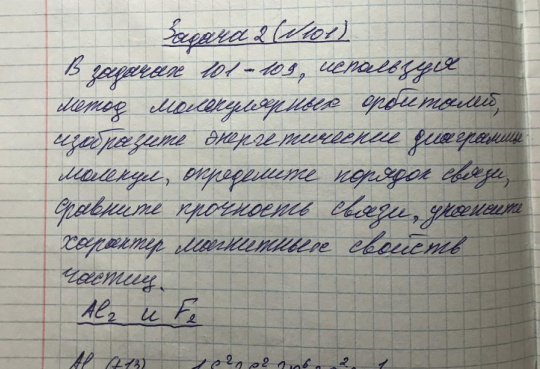 Задача 2 (№101)
В задачах 101-109, используя
метод молекулярных орбиталей,
изобразите энергетические диаграммы
молекул, определите порядок связи,
сравните прочность связи, укажите
характер магнитных свойств
частиц.
Al₂ и F₂
Al (+13)